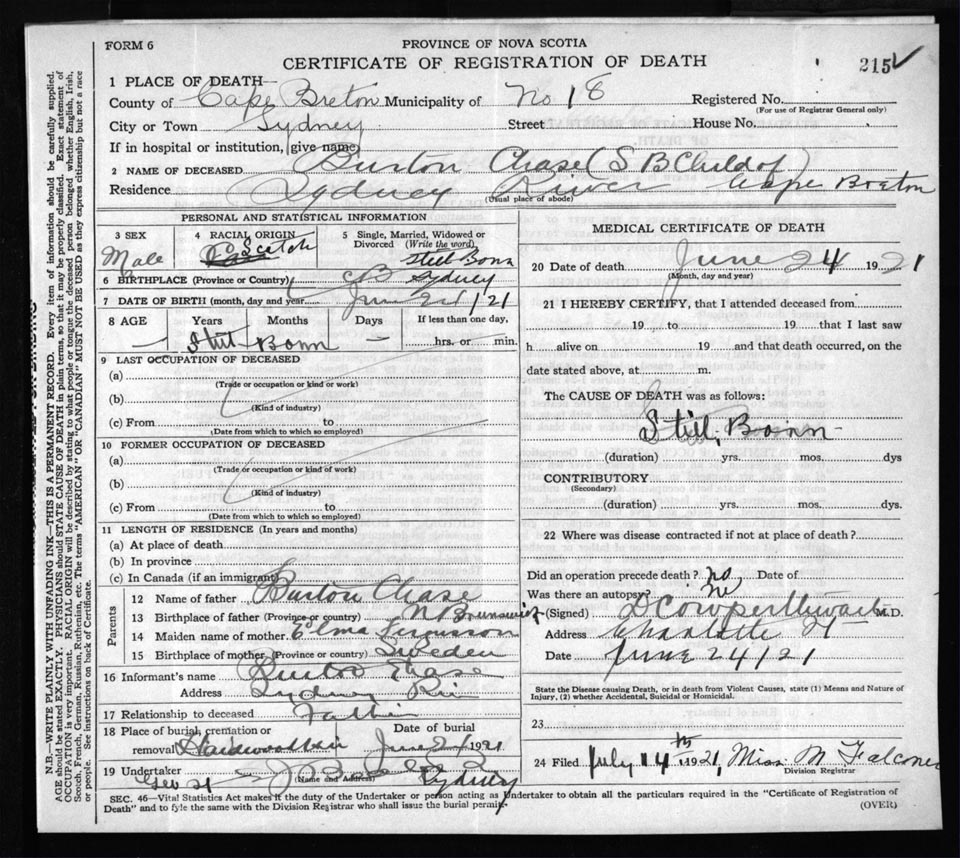 FORM 6
PROVINCE OF NOVA SCOTIA
CERTIFICATE OF REGISTRATION OF DEATH
215
1 PLACE OF DEATH—
County of Cape Breton Municipality of No 18 Registered No.
(For use of Registrar General only)
City or Town Sydney Street House No.
If in hospital or institution, (give name)
2 NAME OF DECEASED Burton Chase (S B Child of)
Residence Sydney River Cape Breton
(Usual place of abode)
PERSONAL AND STATISTICAL INFORMATION
3 SEX
Male
4 RACIAL ORIGIN
Scotch
5 Single, Married, Widowed or
Divorced (Write the word)
Still Born
6 BIRTHPLACE (Province or Country) C B Sydney
7 DATE OF BIRTH (month, day and year) June 24/21
8 AGE Years Months Days If less than one day,
Still Born — hrs. or min.
9 LAST OCCUPATION OF DECEASED
(a)
(Trade or occupation or kind or work)
(b)
(Kind of industry)
(c) From to
(Date from which to which so employed)
10 FORMER OCCUPATION OF DECEASED
(a)
(Trade or occupation or kind of work)
(b)
(Kind of industry)
(c) From to
(Date from which to which so employed)
11 LENGTH OF RESIDENCE (In years and months)
(a) At place of death
(b) In province
(c) In Canada (if an immigrant)
Parents
12 Name of father Burton Chase
13 Birthplace of father (Province or country) N Brunswick
14 Maiden name of mother Elma Fergusson
15 Birthplace of mother (Province or country) Sweden
16 Informant's name Burton Chase
Address Sydney Riv
17 Relationship to deceased Father
18 Place of burial, cremation or Date of burial
removal Hardwood Hill June 24 1921
19 Undertaker
(Name and Address)
Geo St Sydney
MEDICAL CERTIFICATE OF DEATH
20 Date of death June 24 1921
(Month, day and year)
21 I HEREBY CERTIFY, that I attended deceased from
19 to 19 that I last saw
h alive on 19 and that death occurred, on the
date stated above, at m.
The CAUSE OF DEATH was as follows:
Still Born
(duration) yrs. mos. dys
CONTRIBUTORY
(Secondary)
(duration) yrs. mos. dys.
22 Where was disease contracted if not at place of death?
Did an operation precede death? no Date of
Was there an autopsy? no
(Signed) D Cowperthwaite M.D.
Address Charlotte St
Date June 24/21
State the Disease causing Death, or in death from Violent Causes, state (1) Means and Nature of
Injury, (2) whether Accidental, Suicidal or Homicidal.
23
24 Filed July 14th 1921, Miss M Falconer
Division Registrar
SEC. 46—Vital Statistics Act makes it the duty of the Undertaker or person acting as Undertaker to obtain all the particulars required in the "Certificate of Registration of
Death" and to file the same with the Division Registrar who shall issue the burial permit.
(OVER)
N.B.—WRITE PLAINLY WITH UNFADING INK—THIS IS A PERMANENT RECORD. Every item of information should be carefully supplied.
AGE should be stated EXACTLY. PHYSICIANS should STATE CAUSE OF DEATH in plain terms, so that it may be properly classified. Exact statement of
OCCUPATION is very important. RACIAL ORIGIN will be described by stating to what people or tongue the deceased person belonged whether English, Irish,
Scotch, French, German, Russian, Ruthenian, etc. The terms "AMERICAN" OR "CANADIAN" MUST NOT BE USED as they express citizenship but not a race
or people. See instructions on back of Certificate.